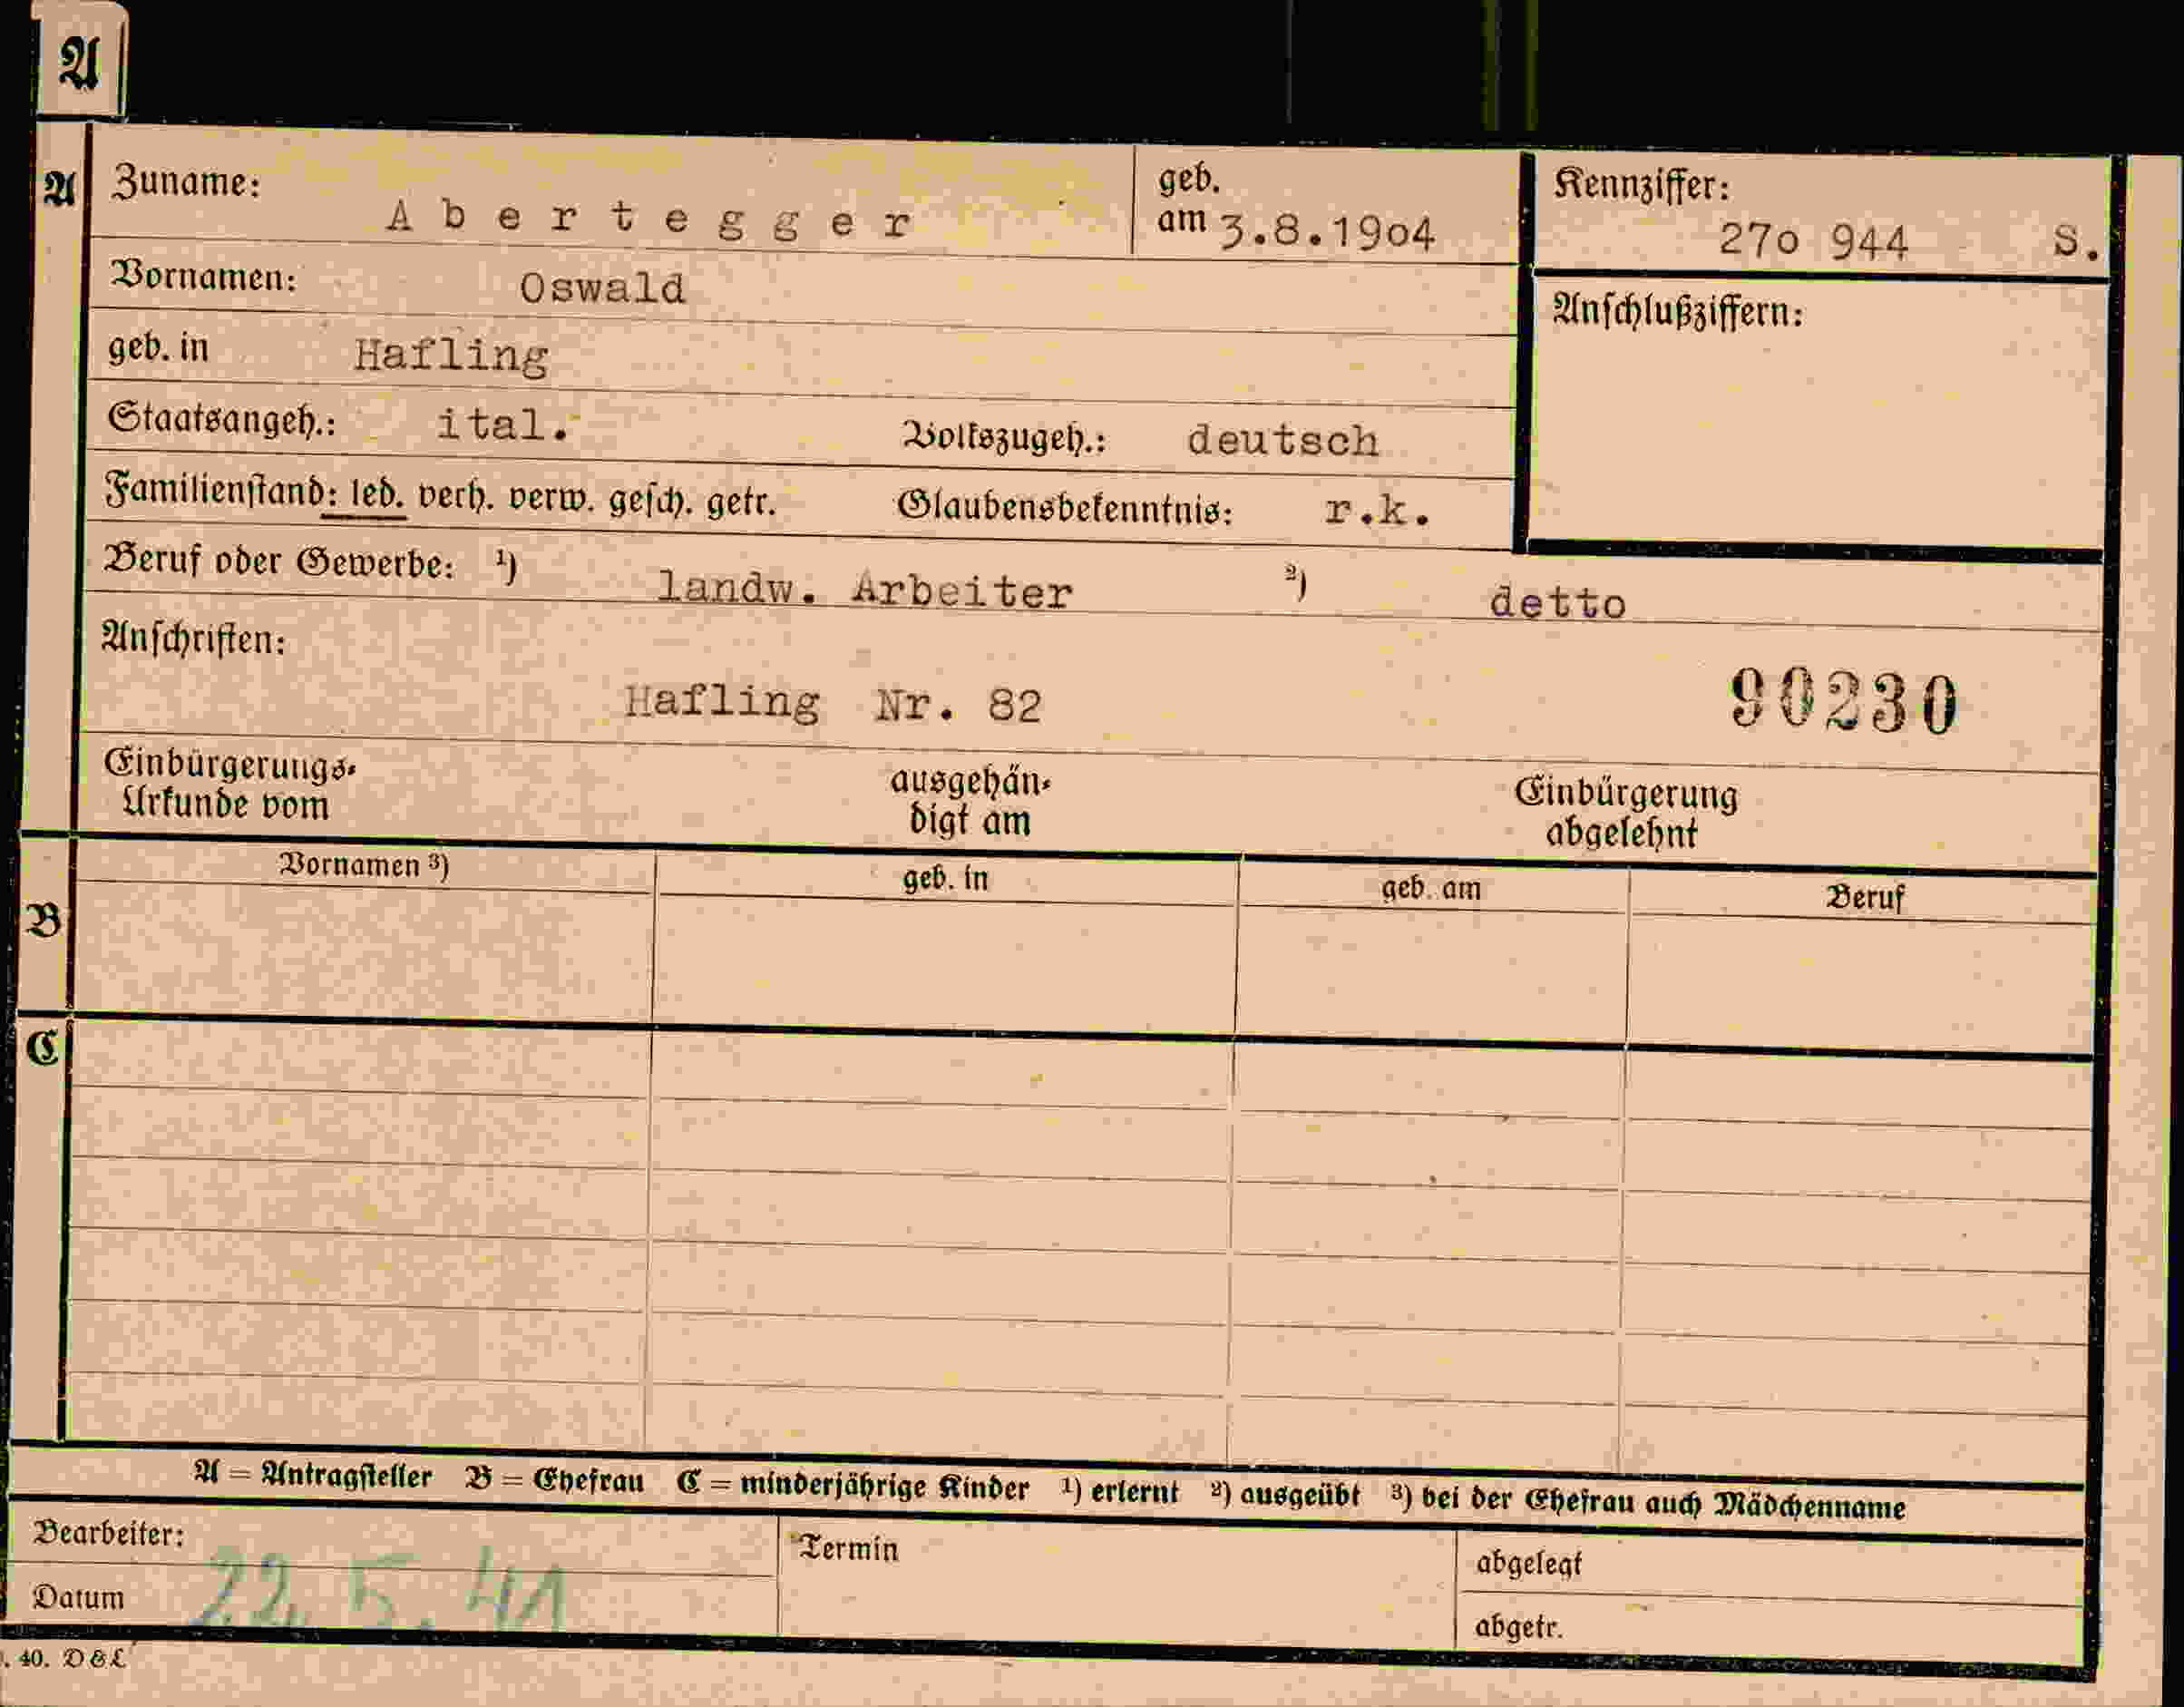 A
A
Zuname: Abertegger
geb. am 3.8.1904
Kennziffer: 270 944 S.
Vornamen: Oswald
Anschlußziffern:
geb. in Hafling
Staatsangeh.: ital. Volkszugeh.: deutsch
Familienstand: led. verh. verw. gesch. getr. Glaubensbekenntnis: r.k.
Beruf oder Gewerbe: 1) landw. Arbeiter 2) detto
Anschriften:
Hafling Nr. 82 90230
Einbürgerungs-
Urkunde vom
ausgehän-
digt am
Einbürgerung
abgelehnt
Vornamen 3) geb. in geb. am Beruf
B
C
A = Antragsteller B = Ehefrau C = minderjährige Kinder 1) erlernt 2) ausgeübt 3) bei der Ehefrau auch Mädchenname
Bearbeiter:
Termin
abgelegt
Datum 22.5.41
abgetr.
. 40. D & L